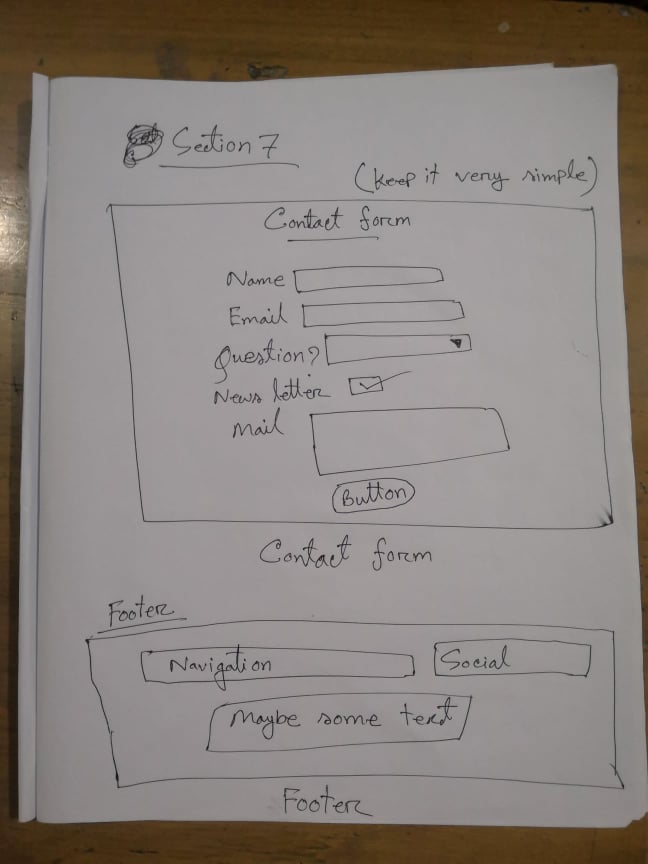 Section 7
(Keep it very simple)
Contact form
Name
Email
Question?
News letter
Mail
Button
Contact form
Footer
Navigation
Social
Maybe some text
Footer